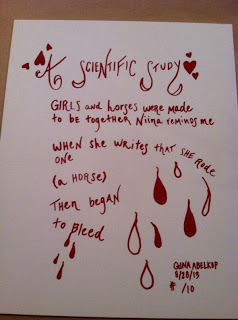 A SCIENTIFIC STUDY
GIRLS and horses were made
to be together Niina reminds me
WHEN she writes THAT SHE RODE
ONE
(a HORSE)
THEN began
to Bleed
GINA ABELKOP
8/28/13
# /10